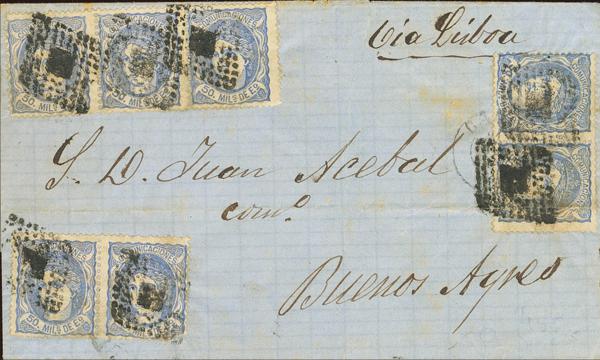 Via Lisboa
50. MILS DE ES.
50. MILS DE ES.
50. MILS DE ES.
COMUNICACIONES
COMUNICACIONES
S. D. Juan Acebal
como
Buenos Ayres
COMUNICACIONES
COMUNICACIONES
50. MILS DE ES.
50. MILS DE ES.